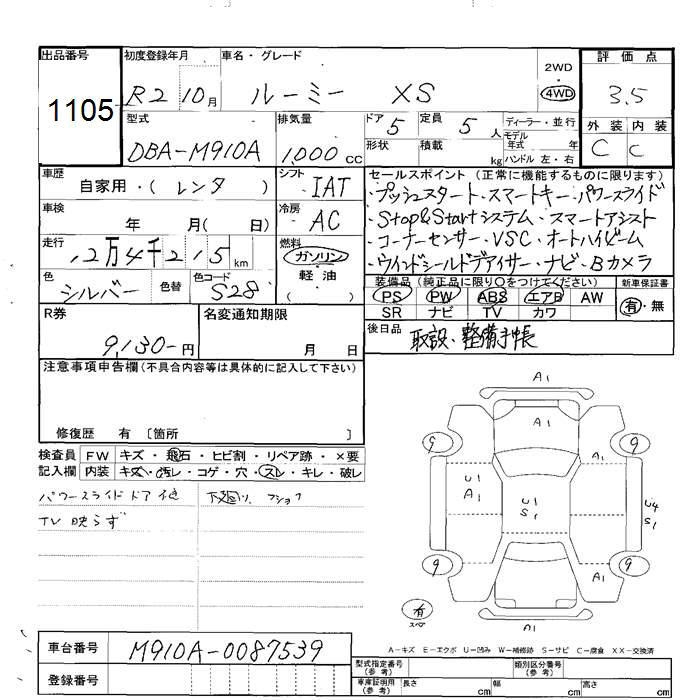 出品番号 初度登録年月 車名・グレード 2WD 評価点
1105 R2 10月 ルーミー XS 4WD 3.5
型式 排気量 ドア 5 定員 5人 ディーラー・並行 外装 内装
DBA-M910A 1,000cc 形状 積載 kg モデル年式 年 C C
ハンドル 左・右
車歴 シフト セールスポイント (正常に機能するものに限ります)
自家用・(レンタ) IAT ・プッシュスタート・スマートキー・パワースライド
車検 年 月( 日) 冷房 AC ・Stop&Startシステム・スマートアシスト
走行 12万4千215km 燃料 ガソリン ・コーナーセンサー・VSC・オートハイビーム
軽油 ・ウインドシールドブアイザー・ナビ・Bカメラ
色 シルバー 色替 色コード S28 ( )
装備品 (純正品に限り○をつけてください) 新車保証書
PS PW ABS エアB AW 有・無
SR ナビ TV カワ
R券 名変通知期限 後日品
9,130-円 月 日 取説、整備手帳
注意事項申告欄(不具合内容等は具体的に記入して下さい)
修復歴 有 〔箇所 〕
検査員 FW キズ・飛石・ヒビ割・リペア跡・×要
記入欄 内装 キズ・汚レ・コゲ・穴・スレ・キレ・破レ
パワースライドドア
TV 映らず
A1
A1
9 9
U1 U1 U4
A1 S1 S1
9 A1 9
有
スペア A1
A-キズ E-エクボ U-凹み W-補修跡 S-サビ C-腐食 XX-交換済
車台番号 M910A-0087539
登録番号
型式指定番号(参考) 類別区分番号(参考)
車庫証明用(参考) 長さ cm 幅 cm 高さ cm